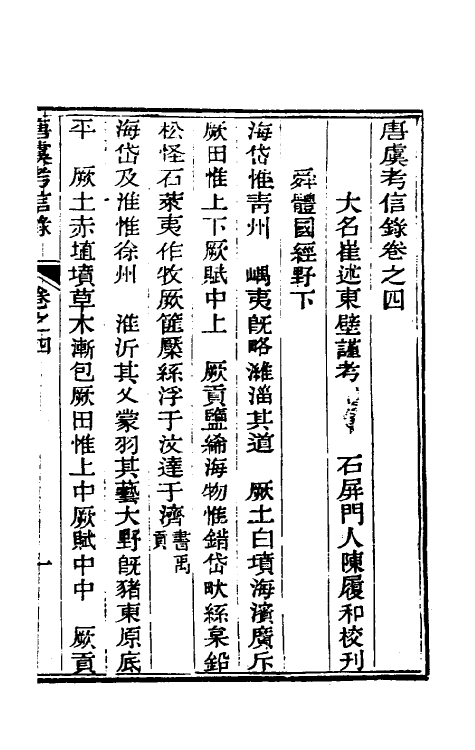 唐虞考信錄卷之四
大名崔述東壁謹考 石屏門人陳履和校刋
舜體國經野下
海岱惟靑州 嵎夷旣略濰淄其道 厥土白墳海濱廣斥
厥田惟上下厥賦中上 厥貢鹽絺海物惟錯岱畎絲枲鉛
松怪石萊夷作牧厥篚檿絲浮于汶達于濟書禹貢
海岱及淮惟徐州 淮沂其乂蒙羽其藝大野旣豬東原底
平 厥土赤埴墳草木漸包厥田惟上中厥賦中中 厥貢
唐虞考信錄 卷之四 一